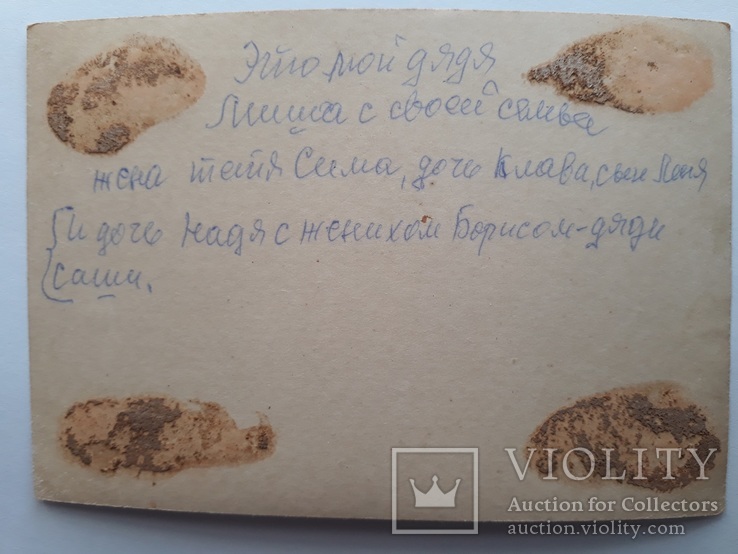 Это мой дядя
Миша с своей семье
жена тётя Сима, дочь Клава, сын Лёня
и дочь Надя с женихом Борисом-дяди
саши.
VIOLITY
Auction for Collectors
auction.violity.com